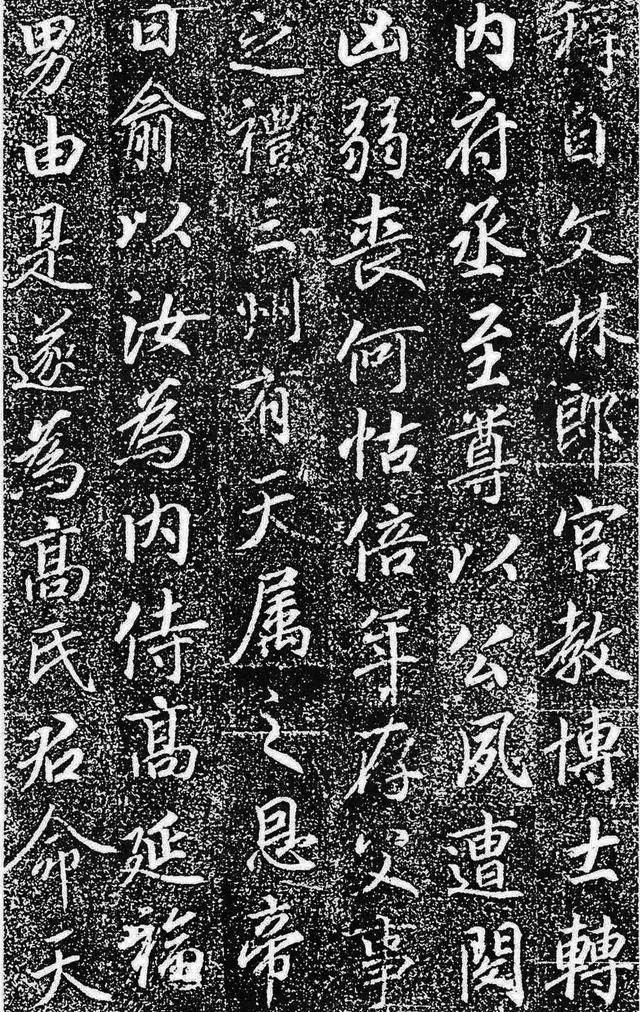 釋自文林郎宮教博士轉
内府丞至尊以公夙遭閔
凶弱喪何怙倍年存父事
之禮三州有天属之恩帝
曰俞以汝為内侍髙延福
男由是遂為髙氏君命天